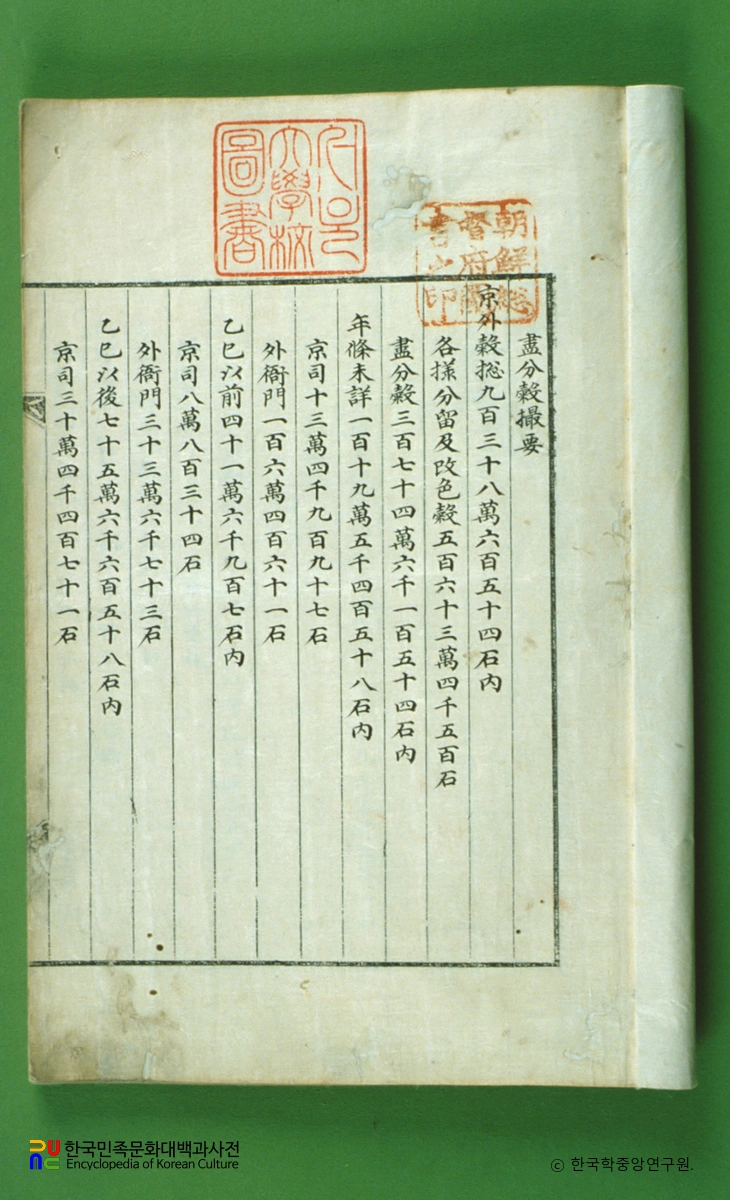 盡分穀撮要
京外穀摠九百三十八萬六百五十四石內
各㨾分留及改色穀五百六十三萬四千五百石
盡分穀三百七十四萬六千一百五十四石內
年條未詳一百十九萬五千四百五十八石內
京司十三萬四千九百九十七石
外衙門一百六萬四百六十一石
乙巳以前四十一萬六千九百七石內
京司八萬八百三十四石
外衙門三十三萬六千七十三石
乙巳以後七十五萬六千六百五十八石內
京司三十萬四千四百七十一石
朝鮮總
督府圖
書之印
大學校
圖書
한국민족문화대백과사전
Encyclopedia of Korean Culture
© 한국학중앙연구원.